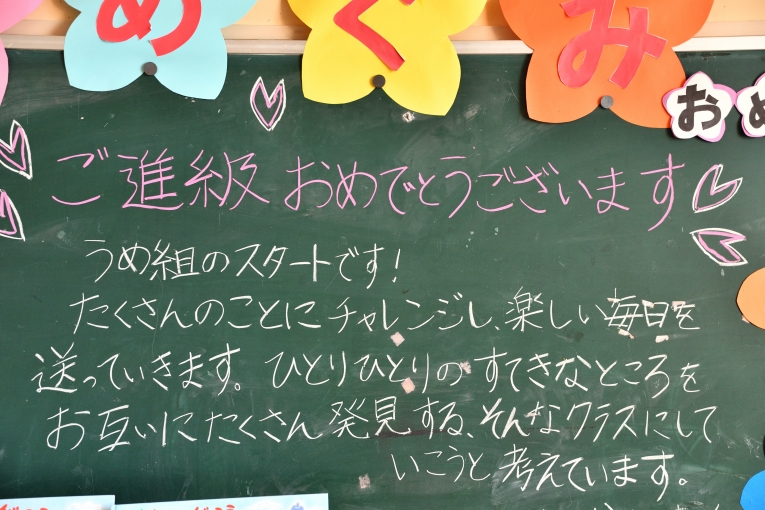 めぐみ
おめ
ご進級 おめでとうございます
うめ組のスタートです!
たくさんのことにチャレンジし、楽しい毎日を
送っていきます。ひとりひとりのすてきなところを
お互いにたくさん発見する、そんなクラスにして
いこうと考えています。